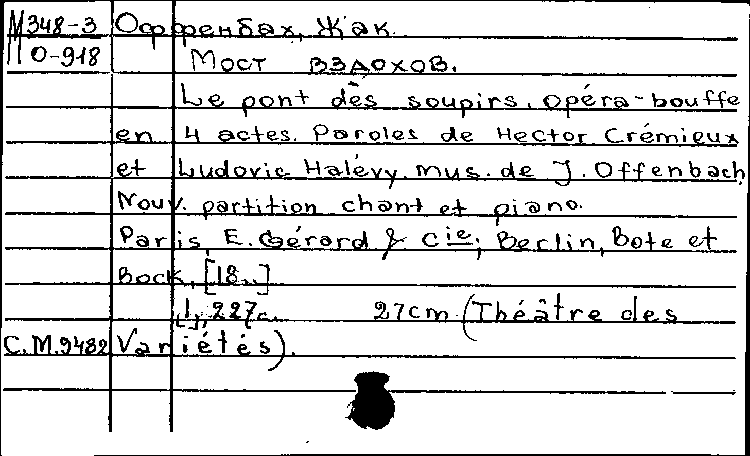 М 348-3 Оффенбах, Жак.
О-918 Мост вздохов.
Le pont des soupirs. opéra-bouffe
en 4 actes. Paroles de Hector Crémieux
et Ludovic Halévy. mus. de J. Offenbach,
Nouv. partition chant et piano.
Paris, E. Gérard & Cie; Berlin, Bote et
Bock, [18..]
[1], 227с. 27cm (Théâtre des
С.М.9482 Variétés).